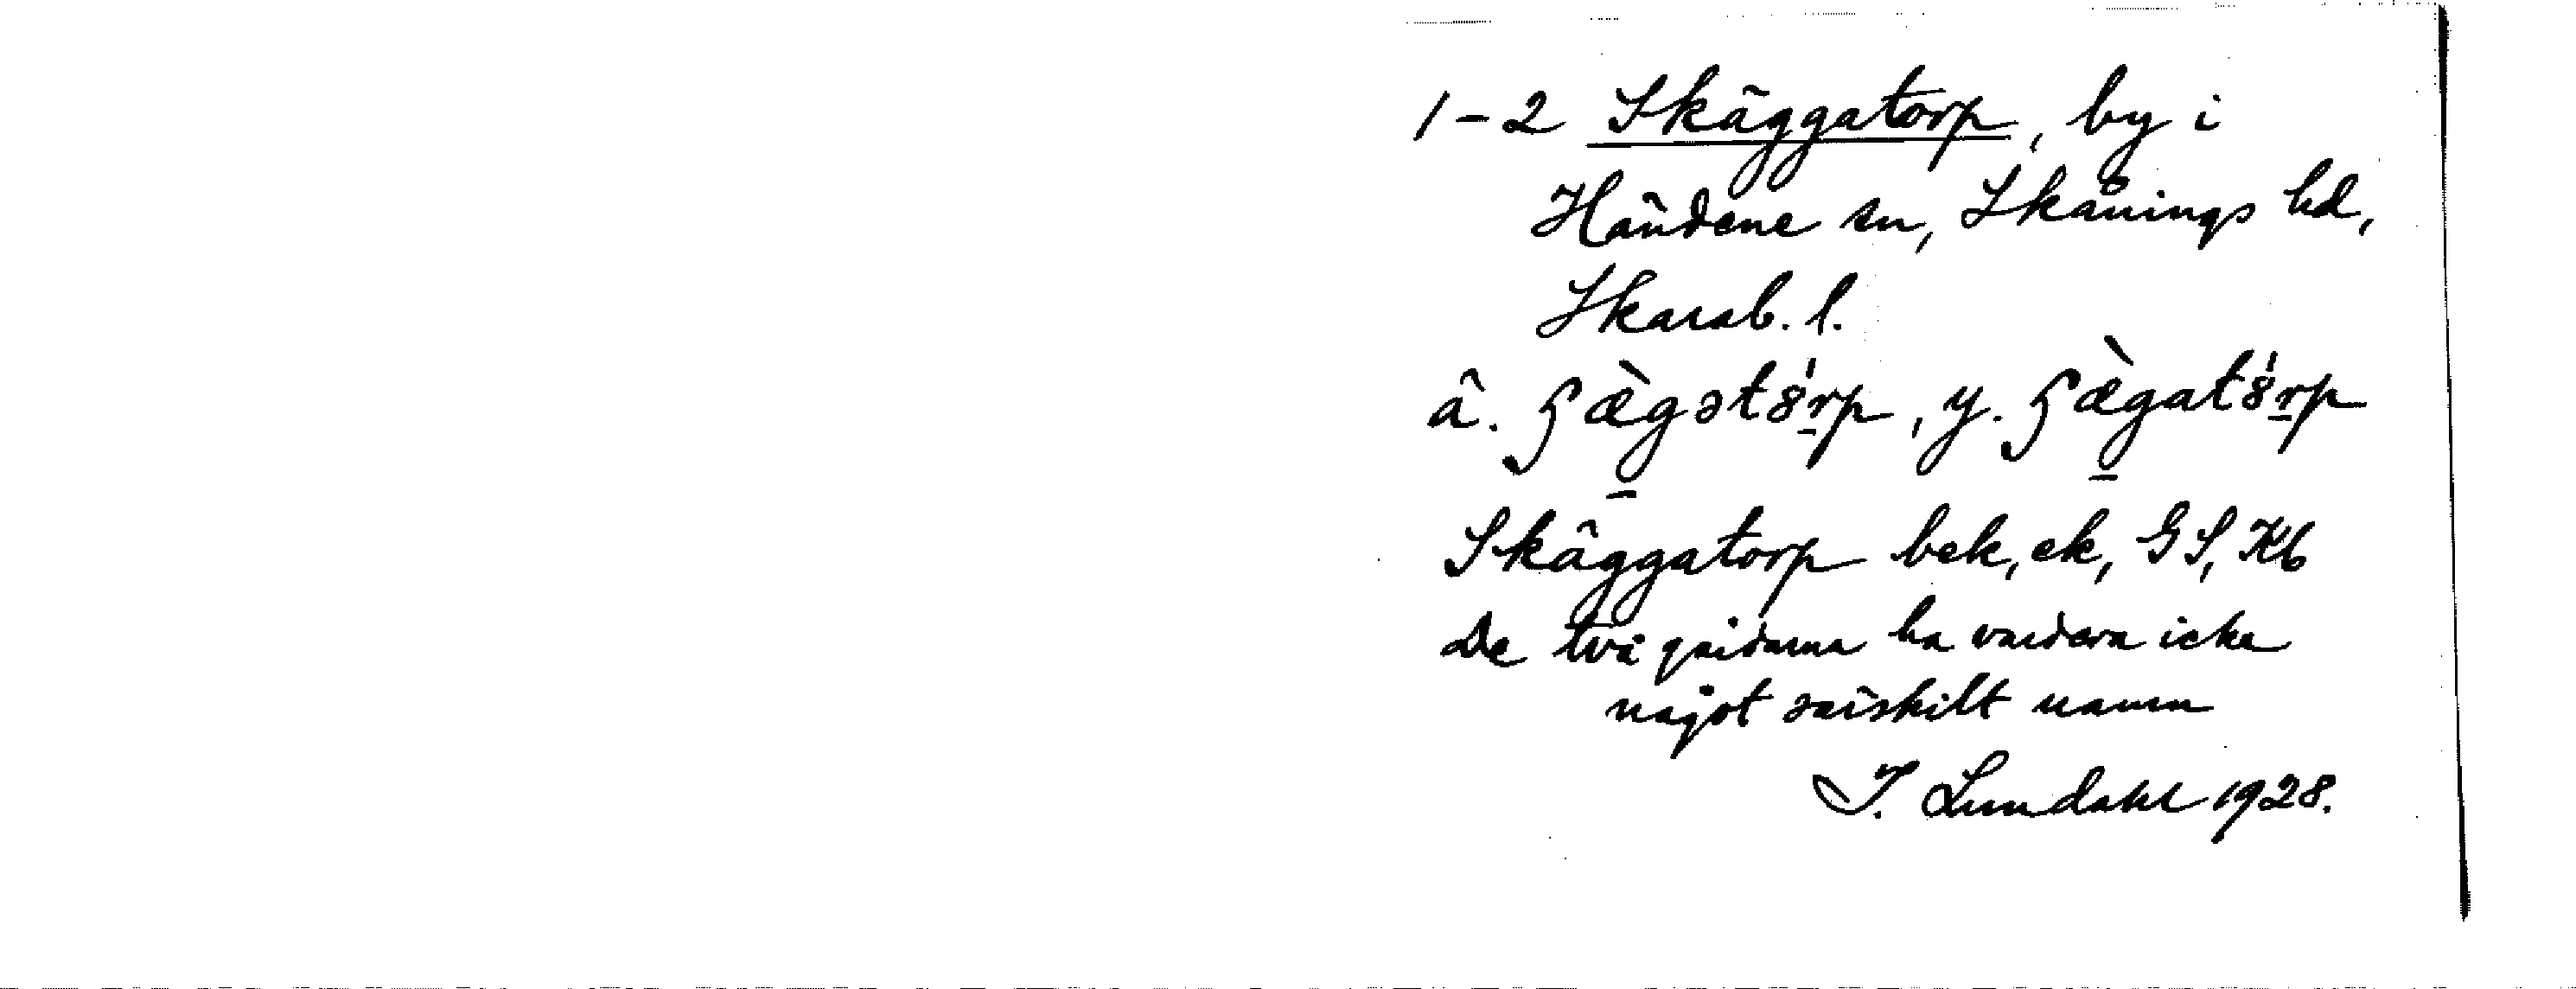 1-2 Skäggatorp, by i
Händene sn, Skånings hd,
Skarab. l.
ä. ʂæ̀gət8́rp, y. ʂæ̀gat8́rp
Skäggatorp bek, ek, GS, Kb
De två gårdarna ha vardera icke
något särskilt namn
I. Lundahl 1928.